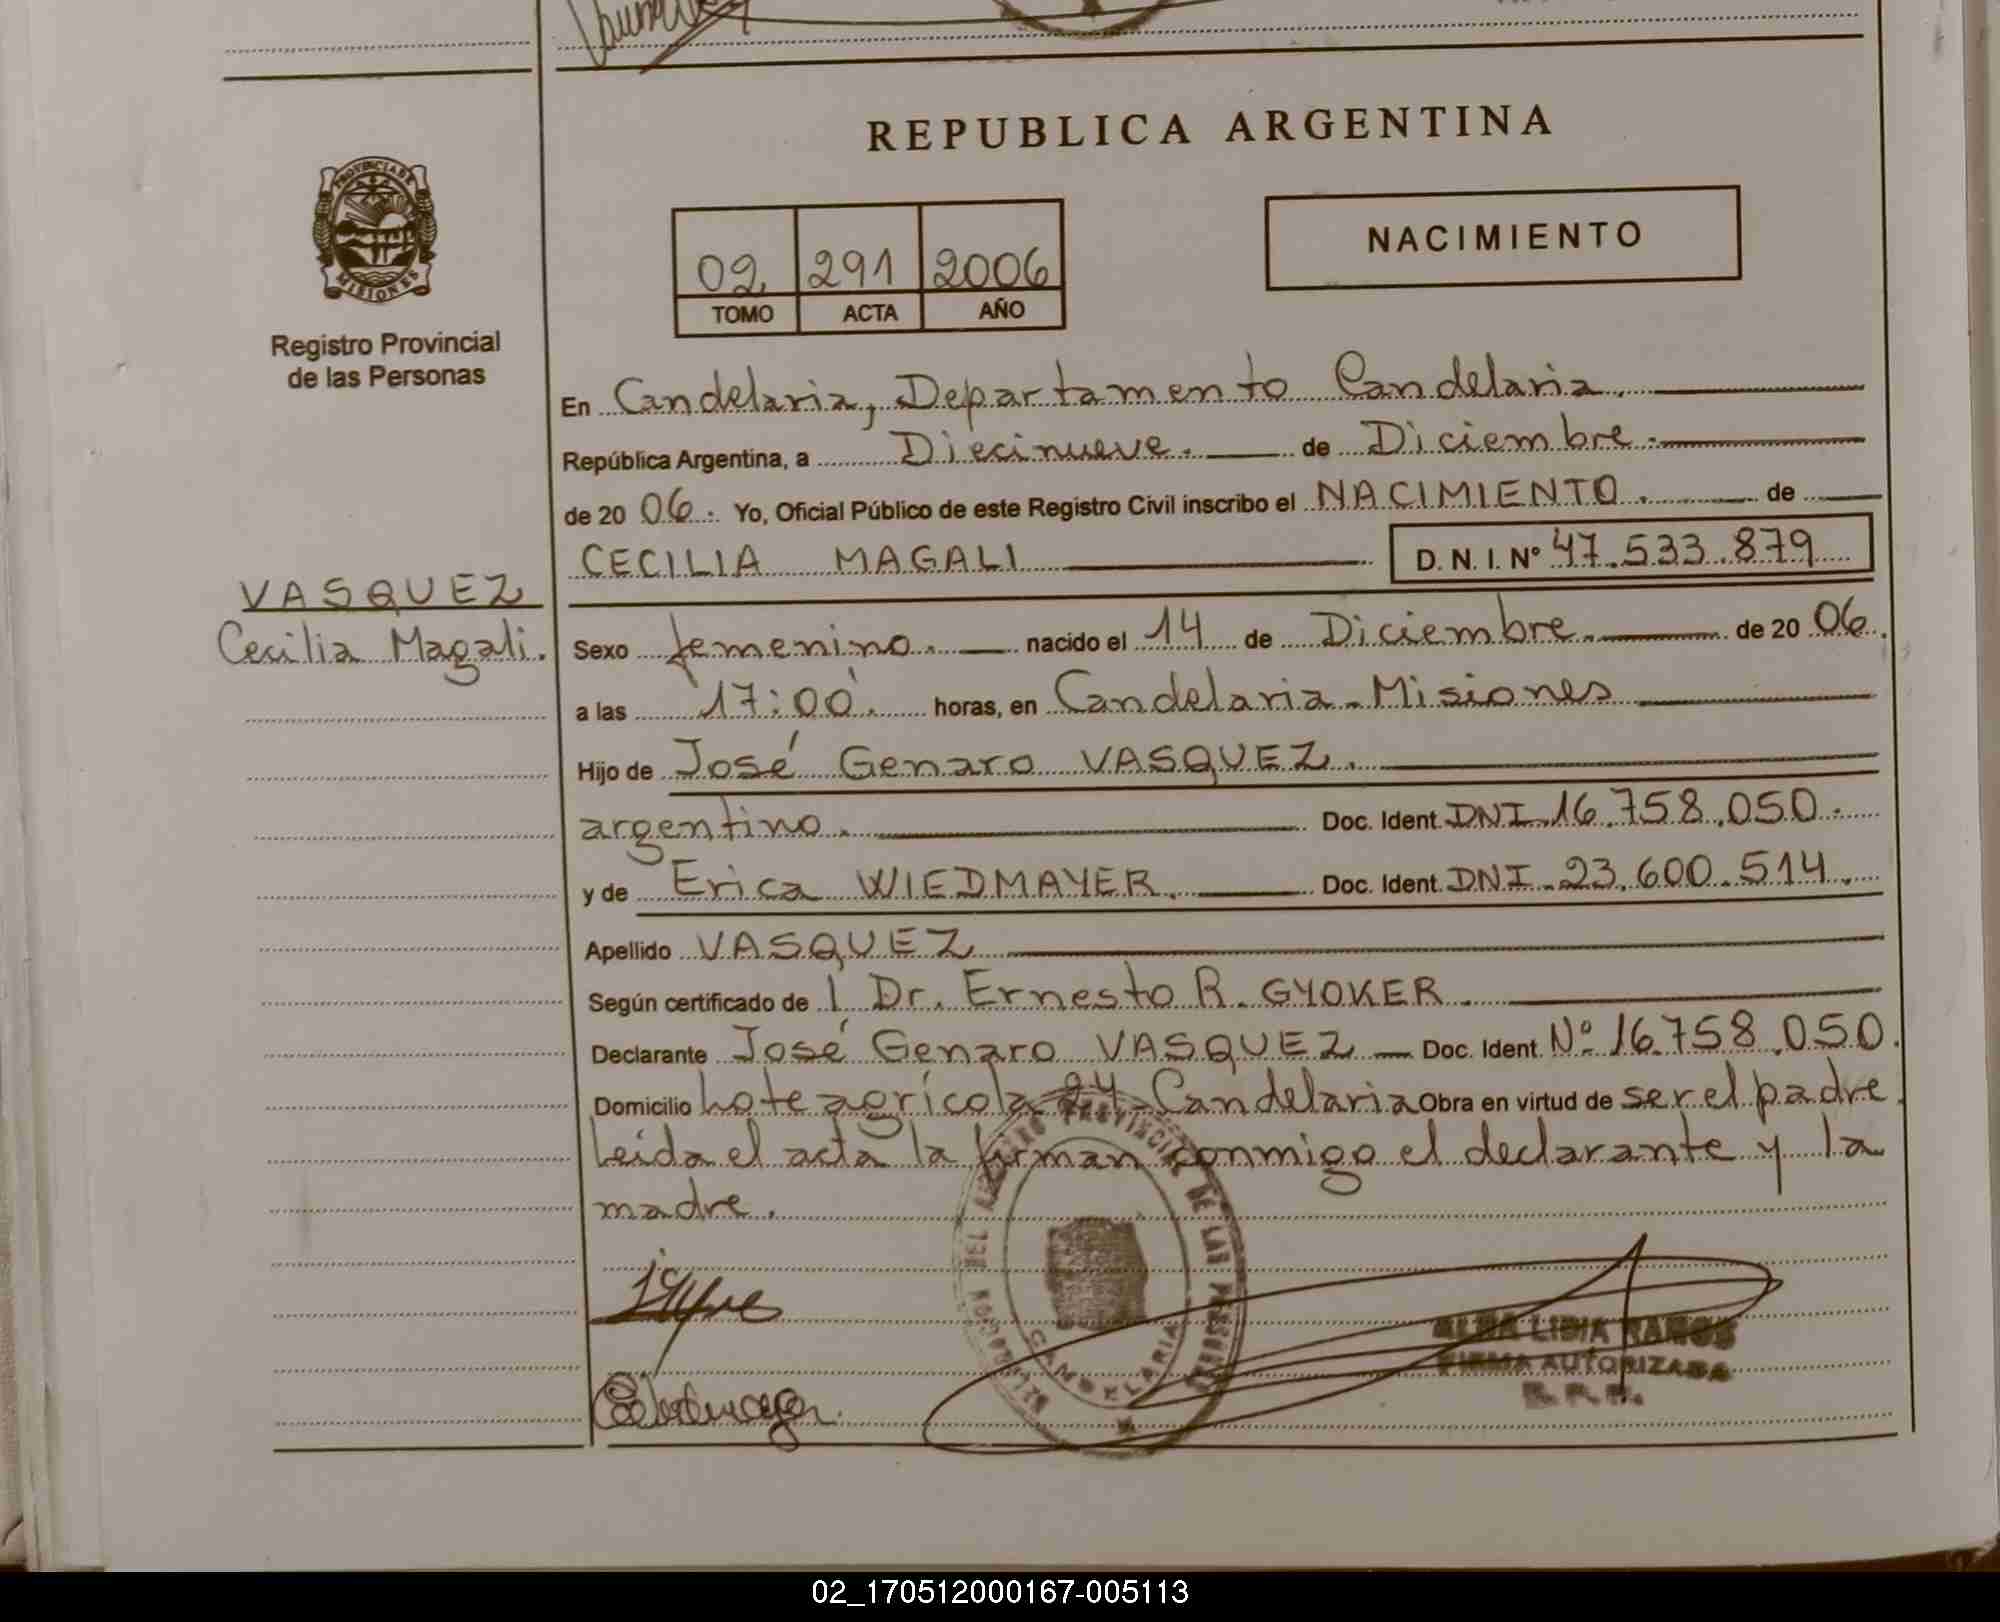 REPUBLICA ARGENTINA
PROVINCIA DE
MISIONES
Registro Provincial
de las Personas
02 291 2006
TOMO ACTA AÑO
NACIMIENTO
En Candelaria, Departamento Candelaria.
República Argentina, a Diecinueve. de Diciembre.
de 20 06. Yo, Oficial Público de este Registro Civil inscribo el NACIMIENTO. de
CECILIA MAGALI D. N. I. Nº 47.533.879
VASQUEZ
Cecilia Magali.
Sexo femenino. nacido el 14 de Diciembre. de 20 06.
a las 17:00. horas, en Candelaria-Misiones
Hijo de José Genaro VASQUEZ.
argentino. Doc. Ident. DNI.16.758.050.
y de Erica WIEDMAYER. Doc. Ident. DNI.23.600.514.
Apellido VASQUEZ
Según certificado de l Dr. Ernesto R. GYOKER.
Declarante José Genaro VASQUEZ Doc. Ident. Nº 16.758.050.
Domicilio Lote agrícola 24-Candelaria Obra en virtud de ser el padre.
Leída el acta la firman conmigo el declarante y la
madre.
PROVINCIAL DE LAS PERSONAS
CANDELARIA
ALBA LIDIA RAMOS
FIRMA AUTORIZADA
R. P. P.
02_170512000167-005113